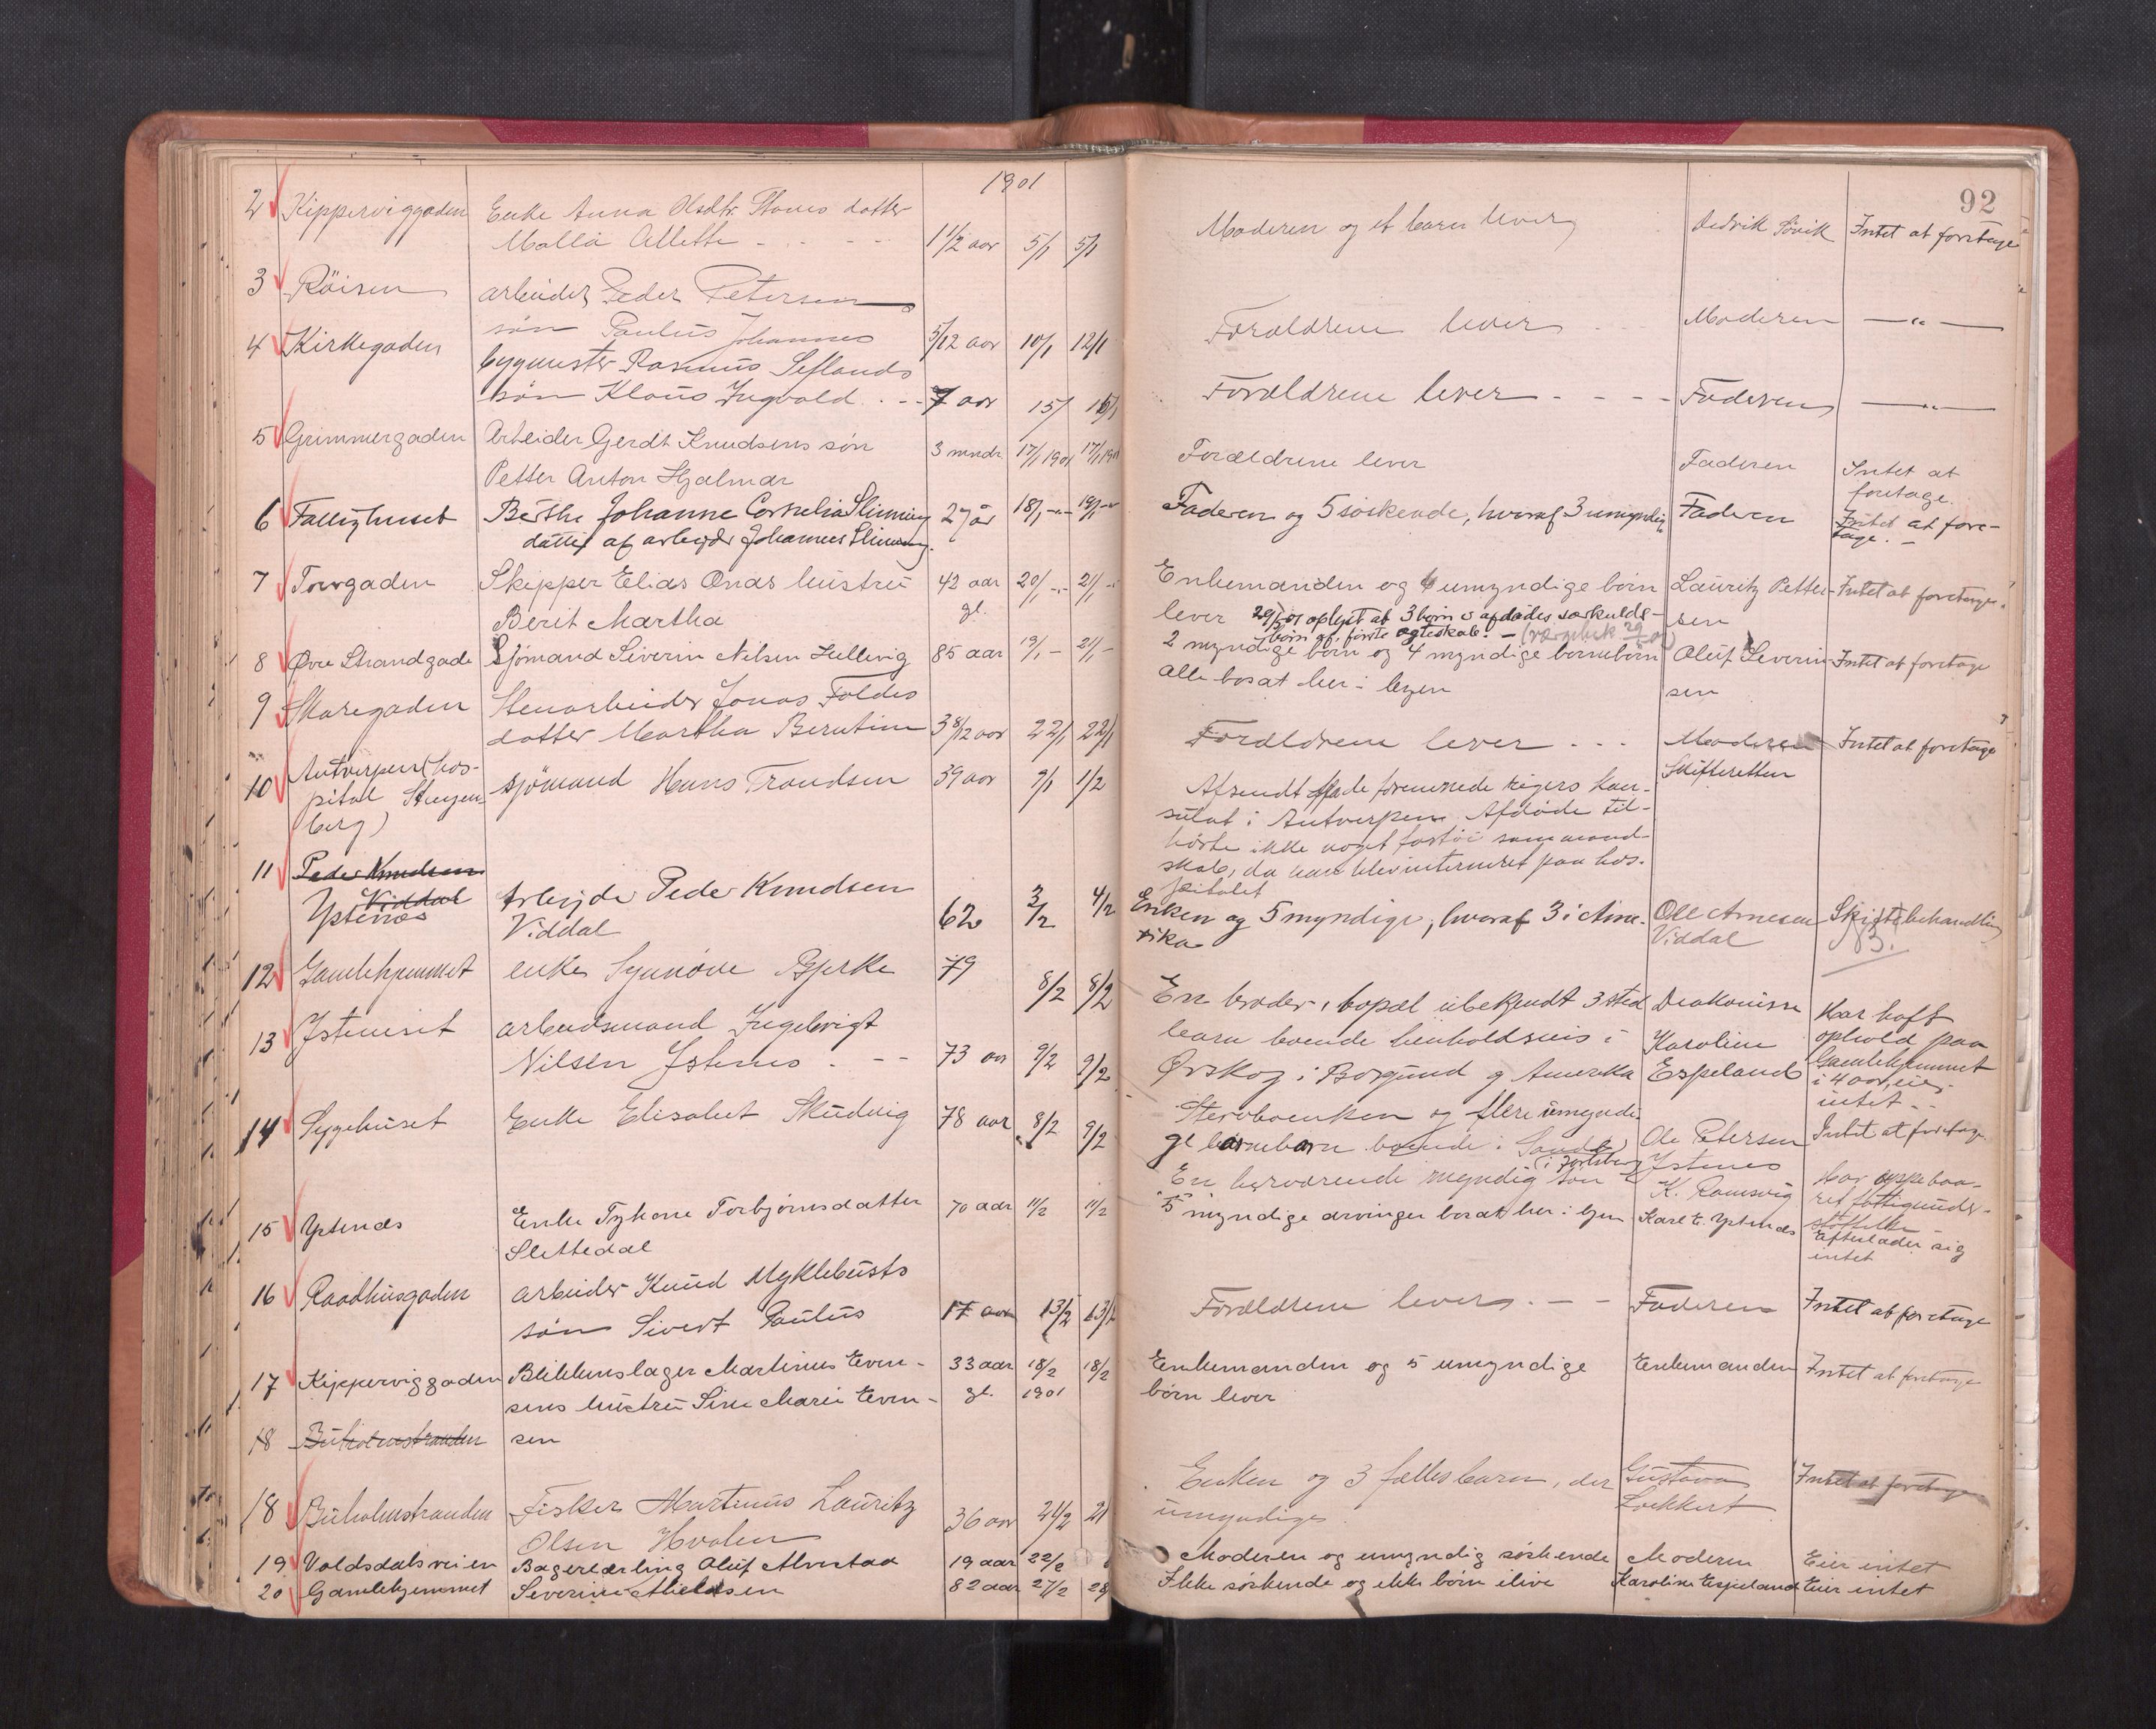 1901
92
2 Kipperviggaden Enke Anna Olsdtr. datter Moderen og et barn lever Didrik Sövik Intet at foretage
Malla Allette - - - 1 1/2 aar 5/1 5/1
3 Röisen arbeider Peder Petersens
søn Paulus Johannes 5/12 aar 10/1 12/1 Forældrene lever Moderen —"—
4 Kirkegaden bygmester Rasmus Seflands
søn Klaus Ingvald . - - 7 aar 15/ 16/1 Forældrene lever - - - - Faderen —"—
5 Grimmergaden Arbeider Gerdt Knudsens søn 3 mndr 17/1 1901 17/1 1901 Forældrene lever Faderen Intet at
Petter Anton Hjalmar foretage.
6 Fattighuset Berthe Johanne Cornelia Slinning 27 år 18/1 -"- 19/1 -"- Faderen og 5 søskende, hvoraf 3 umyndig Faderen Intet at fore-
datter af arbeider Johannes Slinning. tage. -
7 Torvgaden Skipper Elias Onas hustru 42 aar 20/1 -"- 21/1 -"- Enkemanden og 4 umyndige børn Lauritz Petter- Intet at foretage.
gl. lever 29/1 01 oplyst at 3 børn afdødes særkulds- sen
Berit Martha børn af første egteskab. -
8 Øvre Strandgade Sjømand Siverin Nilsen Hellevig 85 aar 19/1 - 21/1 - 2 myndige børn og 4 myndige børnebørn Oluf Severin- Intet at foretage
alle bosat her i byen sen
9 Skaregaden Stenarbeider Jonas Foldes
datter Martha Berntine 3 8/12 aar 22/1 22/1 Forældrene lever - - - Moderen Intet at foretage
10 Antverpen (hos- sjömand Hans Trandsen 39 aar 9/1 1/2 Skifteretten
pital Stuyen- Afsendt fra de forenede rigers kon-
berg) sulat i Antverpen. Afdöde til-
hörte ikke noget fartöi som mand-
skab, da han blev interneret paa hos-
pitalet
11 Peder Knudsen
Viddal
Ystenæs Arbejder Peder Knudsen 62 3/2 4/2 Enken og 5 myndige, hvoraf 3 i Ame- Ole Arnesen Skiftebehandling
Viddal rika Viddal 3.
12 Gamlehjemmet enke Synnöve Bjerke 79 8/2 8/2 En broder, bopæl ubekjendt 3 sted Diakonisse Har haft
barn boende henholdsvis i Karoline ophold paa
Ørskog i Borgund og Amerika Espeland Gamlehjemmet
i 4 aar, eier
intet - -
13 Isteneset arbeidsmand Ingebrigt
Nilsen Istenes . - - 73 aar 9/2 9/2 Stervboenken og flere umyndi- Ole Petersen Intet at foretage
ge barnebarn boende i Sande Istenes
14 Sygehuset Enke Elisabet Skudvig 78 aar 8/2 9/2 En herværende myndig søn K. Ramsvig Har oppebaa-
ret fattigunder-
støttelse
Efterlader sig
intet
15 Ystenæs Enke Tykone Torbjörnsdatter 70 aar 11/2 11/2 5 myndige arvinger bosat her i byen Karl E. Ystenæs
Slettedal
16 Raadhusgaden arbeider Knud Myklebusts
søn Sivert Paulus 17 aar 13/2 13/2 Forældrene lever. - - Faderen Intet at foretage
17 Kipperviggaden Blikkenslager Martinus Even- 33 aar 18/2 18/2 Enkemanden og 5 umyndige Enkemanden Intet at foretage
sens hustru Sine Marie Even- gl. 1901 børn lever
18 Buholmstranden sen
18 Buholmstranden Fisker Martinus Lauritz 36 aar 21/2 21 Enken og 3 fælles barn, der Gustava Intet at foretage
Olsen Hvalen umyndige. Lockkert
19 Voldsdalsveien Bagerlærling Oluf Alnestad 19 aar 22/2 Moderen og umyndig søskende Moderen Eier intet
20 Gamlehjemmet Severine Mielsen 82 aar 27/2 28 Ikke søskende og ikke børn ilive Karoline Espeland Eier intet